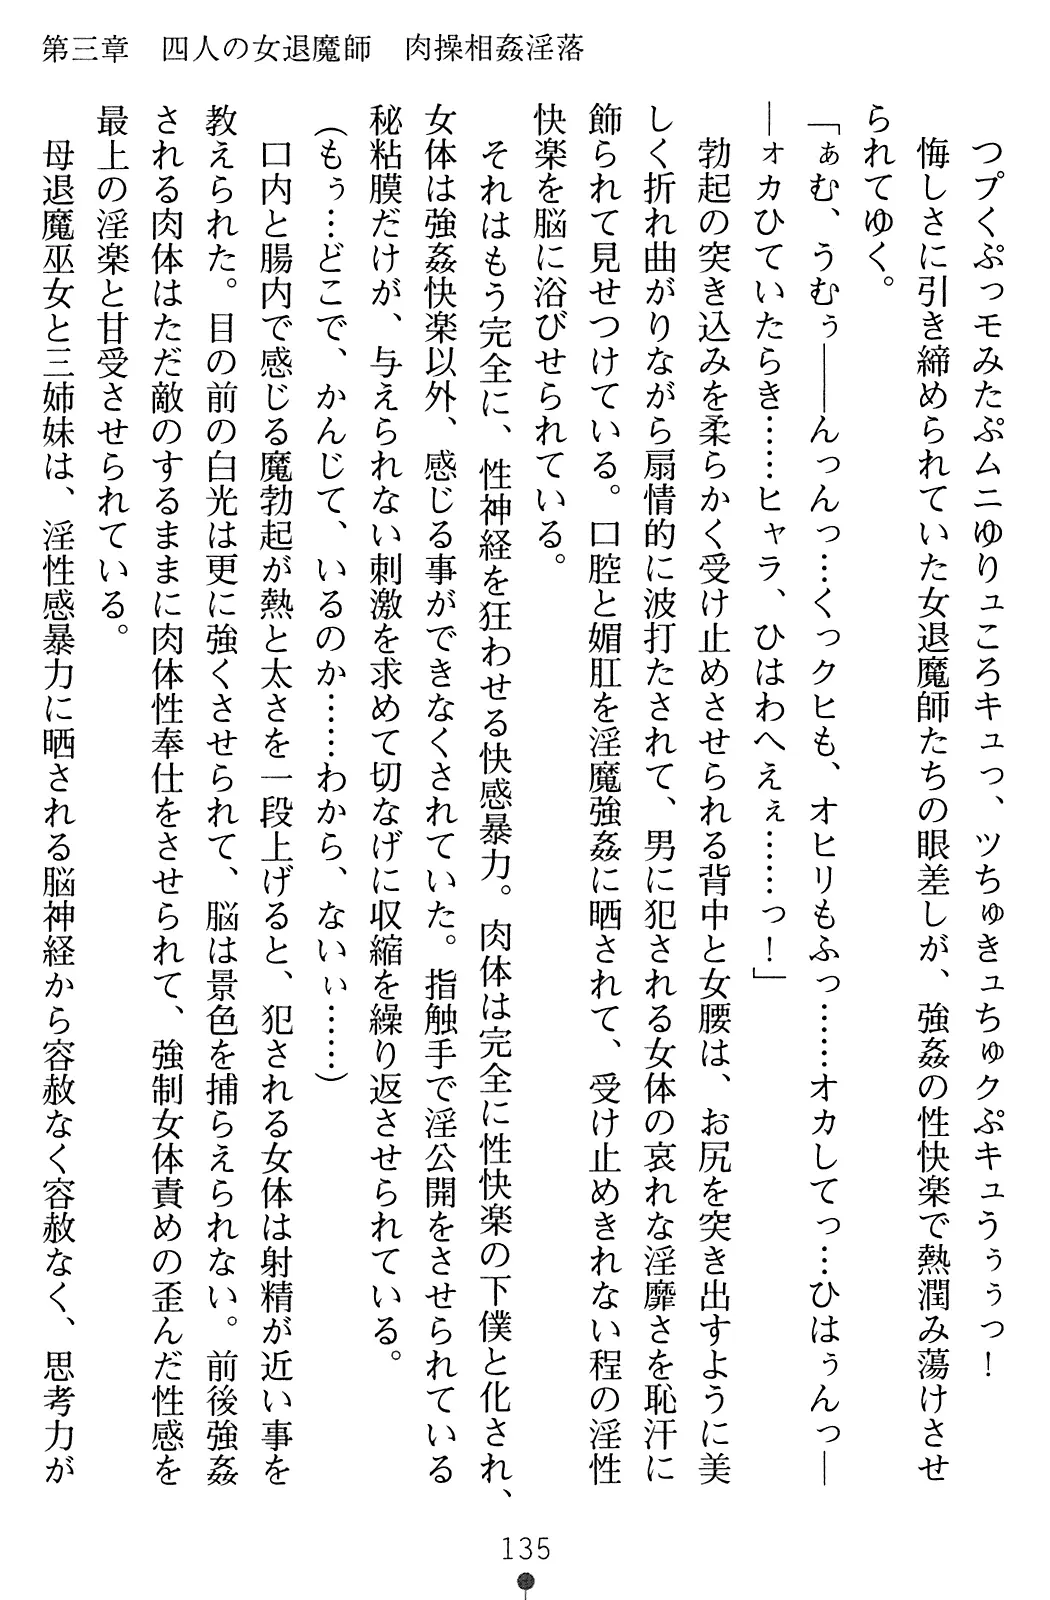 第三章　四人の女退魔師　肉操相姦淫落
つプくぷっモみたぷムニゆりュころキュっ、ツちゅきュちゅクぷキュうぅぅっ！
悔しさに引き締められていた女退魔師たちの眼差しが、強姦の性快楽で熱潤み蕩けさせ
られてゆく。
「ぁむ、うむぅ――んっんっ…くっクヒも、オヒリもふっ……オカしてっ…ひはぅんっ―
―ォカひていたらき……ヒャラ、ひはわへえぇ……っ！」
勃起の突き込みを柔らかく受け止めさせられる背中と女腰は、お尻を突き出すように美
しく折れ曲がりながら扇情的に波打たされて、男に犯される女体の哀れな淫靡さを恥汗に
飾られて見せつけている。口腔と媚肛を淫魔強姦に晒されて、受け止めきれない程の淫性
快楽を脳に浴びせられている。
それはもう完全に、性神経を狂わせる快感暴力。肉体は完全に性快楽の下僕と化され、
女体は強姦快楽以外、感じる事ができなくされていた。指触手で淫公開をさせられている
秘粘膜だけが、与えられない刺激を求めて切なげに収縮を繰り返させられている。
（もぅ…どこで、かんじて、いるのか……わから、ないぃ……）
口内と腸内で感じる魔勃起が熱と太さを一段上げると、犯される女体は射精が近い事を
教えられた。目の前の白光は更に強くさせられて、脳は景色を捕らえられない。前後強姦
される肉体はただ敵のするままに肉体性奉仕をさせられて、強制女体責めの歪んだ性感を
最上の淫楽と甘受させられている。
母退魔巫女と三姉妹は、淫性感暴力に晒される脳神経から容赦なく容赦なく、思考力が
135